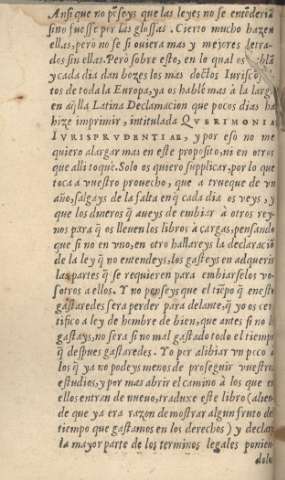 Ansi que no pẽseys que las leyes no se entẽderiã
sino fuesse por las glossas. Cierto mucho hazen
ellas, pero no se si ouiera mas y mejores letra-
dos sin ellas. Pero sobre esto, en lo qual os
y cada dia dan bozes los mas doctos Iurisco
tos de toda la Europa, ya os hablé mas à la larg
en aq̃lla Latina Declamacion que pocos dias ha
hize imprimir, intitulada QVERIMONIA
IVRISPRVDENTIAE, y por esso no me
quiero alargar mas en este proposito, ni en otros
que alli toquè. Solo os quiero supplicar, por lo que
toca a vuestro prouecho, que a trueque de vn
año, salgays de la falta en q̃ cada dia os veys, y
que los dineros q̃ aueys de embiar à otros rey-
nos para q̃ os lleuen los libros à cargas, pensando
que si no en vno, en otro hallareys la declaraciõ
de la ley q̃ no entendeys, los gasteys en adquerir
las partes q̃ se requieren para embiarselos vo-
sotros a ellos. Y no pẽseys que el tiẽpo q̃ enesto
gastaredes sera perder para delante, q̃ yo os cer
tifico a ley de hombre de bien, que antes si no lo
gastays, no sera si no mal gastado todo el tiempo
q̃ despues gastaredes. Yo por alibiar vn poco a
los q̃ ya no podeys menos de proseguir vuestros
estudios, y por mas abrir el camino à los que en
ellos entran de nueuo, traduxe este libro (allen
de que ya era razon de mostrar algun fruto del
tiempo que gastamos en los derechos) y declarè
la mayor parte de los terminos legales ponien-
dolo